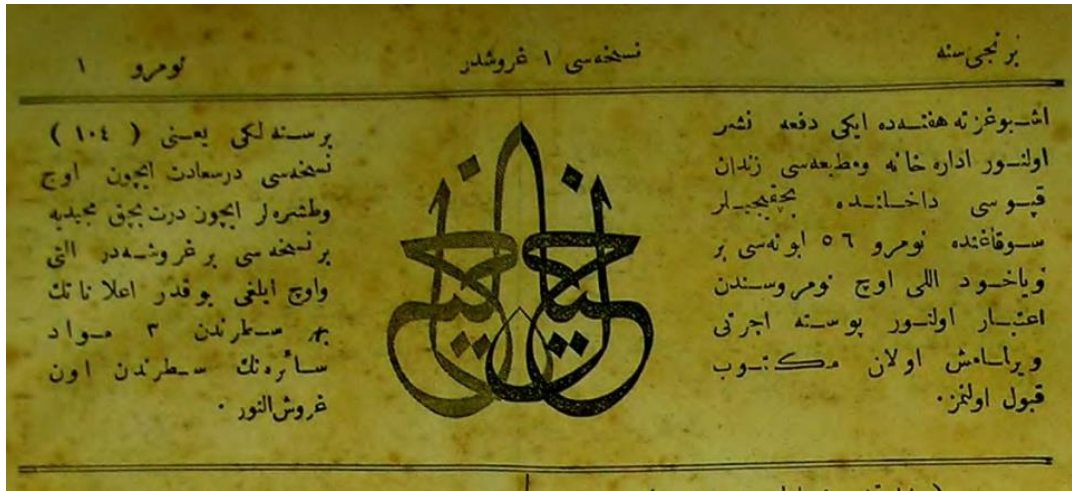 برنجی سنه
نسخه‌سی ١ غروشدر
نومرو ١
اشبو غزته هفته‌ده ایکی دفعه نشر
اولنور اداره خانه ومطبعه‌سی زندان
قپوسی داخلنده بچقیجیلر
سوقاغنده نومرو ٥٦ ابونه‌سی بر
ویاخود اللی اوچ نومروسندن
اعتبار اولنور پوسته اجرتی
ویرلمامش اولان مکتوب
قبول اولنمز .
خیال
بر سنه لکی یعنی ( ١٠٤ )
نسخه‌سی درسعادت ایچون اوچ
وطشره لر ایچون درت بچق مجیدیه
بر نسخه سی بر غروشه‌در التی
واوچ ایلغی یوقدر اعلاناتك
بهر سطرندن ٣ مواد
سائره‌نك سطرندن اون
غروش النور .